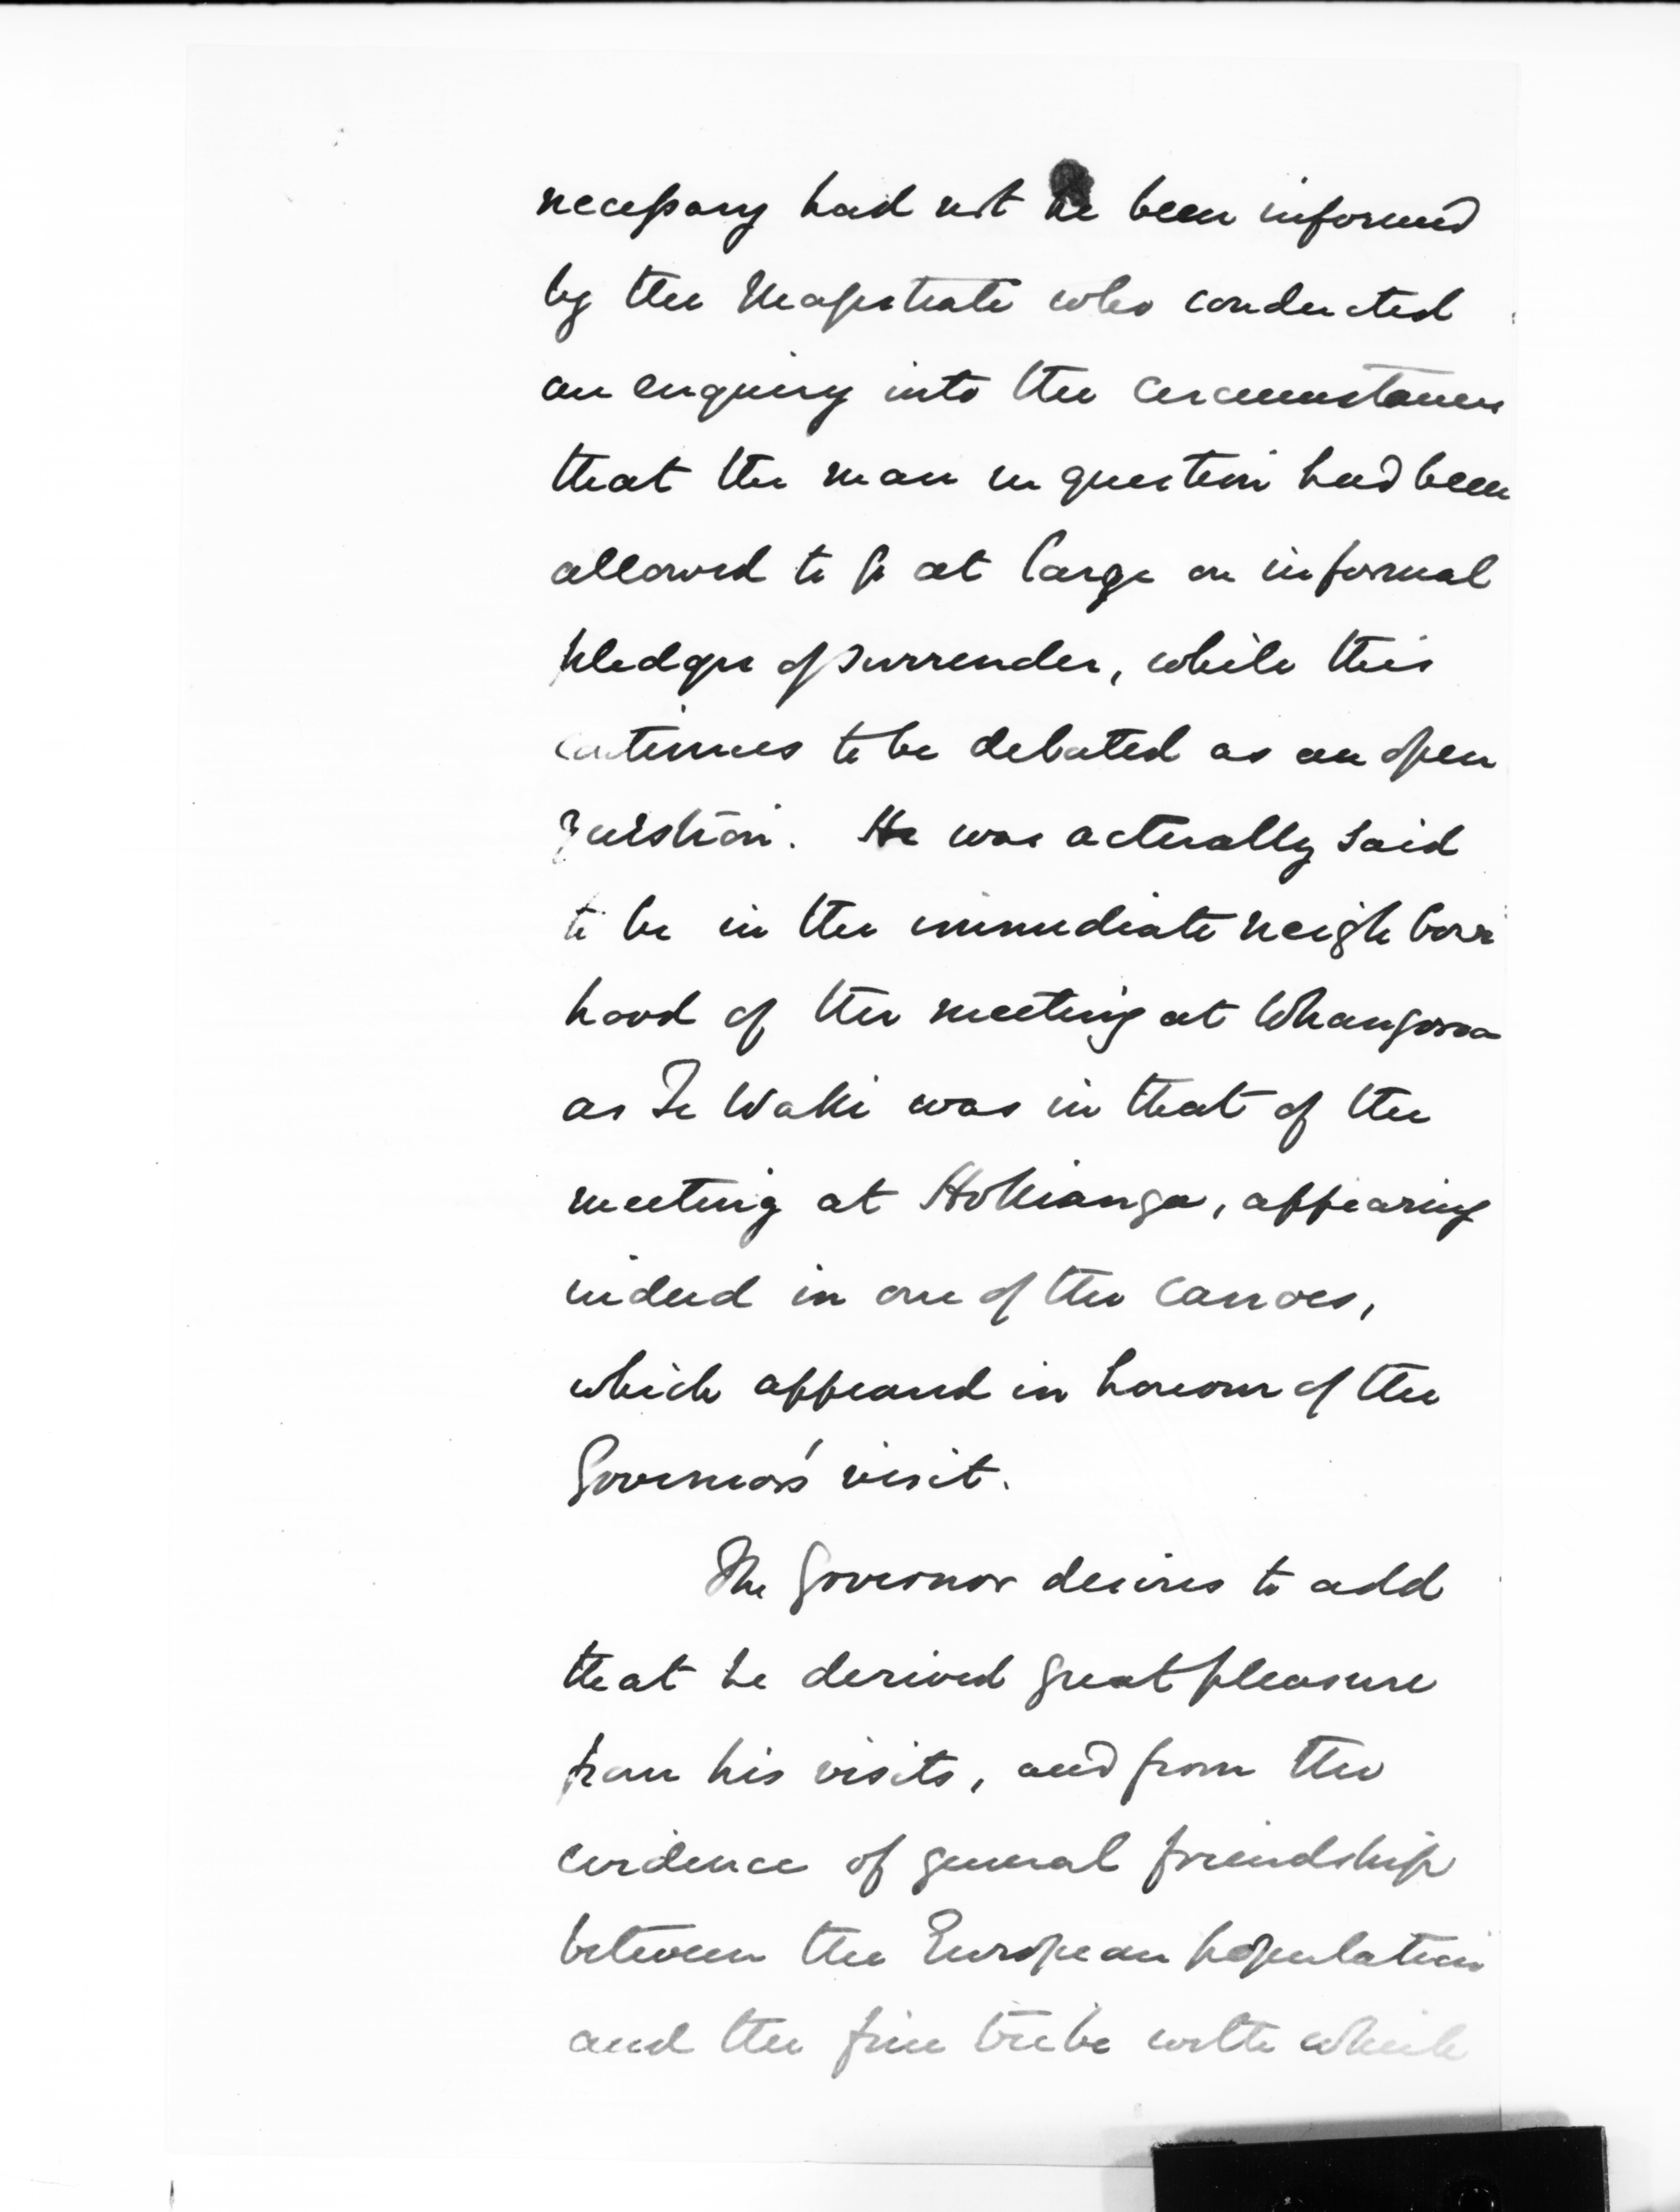 necessary had not he been informed
by the Magistrate who conducted
an enquiry into the circumstances
that the man in question had been
allowed to go at large on informal
pledge of surrender, while this
continues to be debated as an open
question. He was actually said
to be in the immediate neighbour
hood of the meeting at Whangaroa
as Te Waki was in that of the
meeting at Hokianga, appearing
indeed in one of the canoes,
which appeared in honour of the
Governor's visit.
The Governor desires to add
that he derived great pleasure
from his visits, and from the
evidence of general friendship
between the European population
and the fine tribe with which